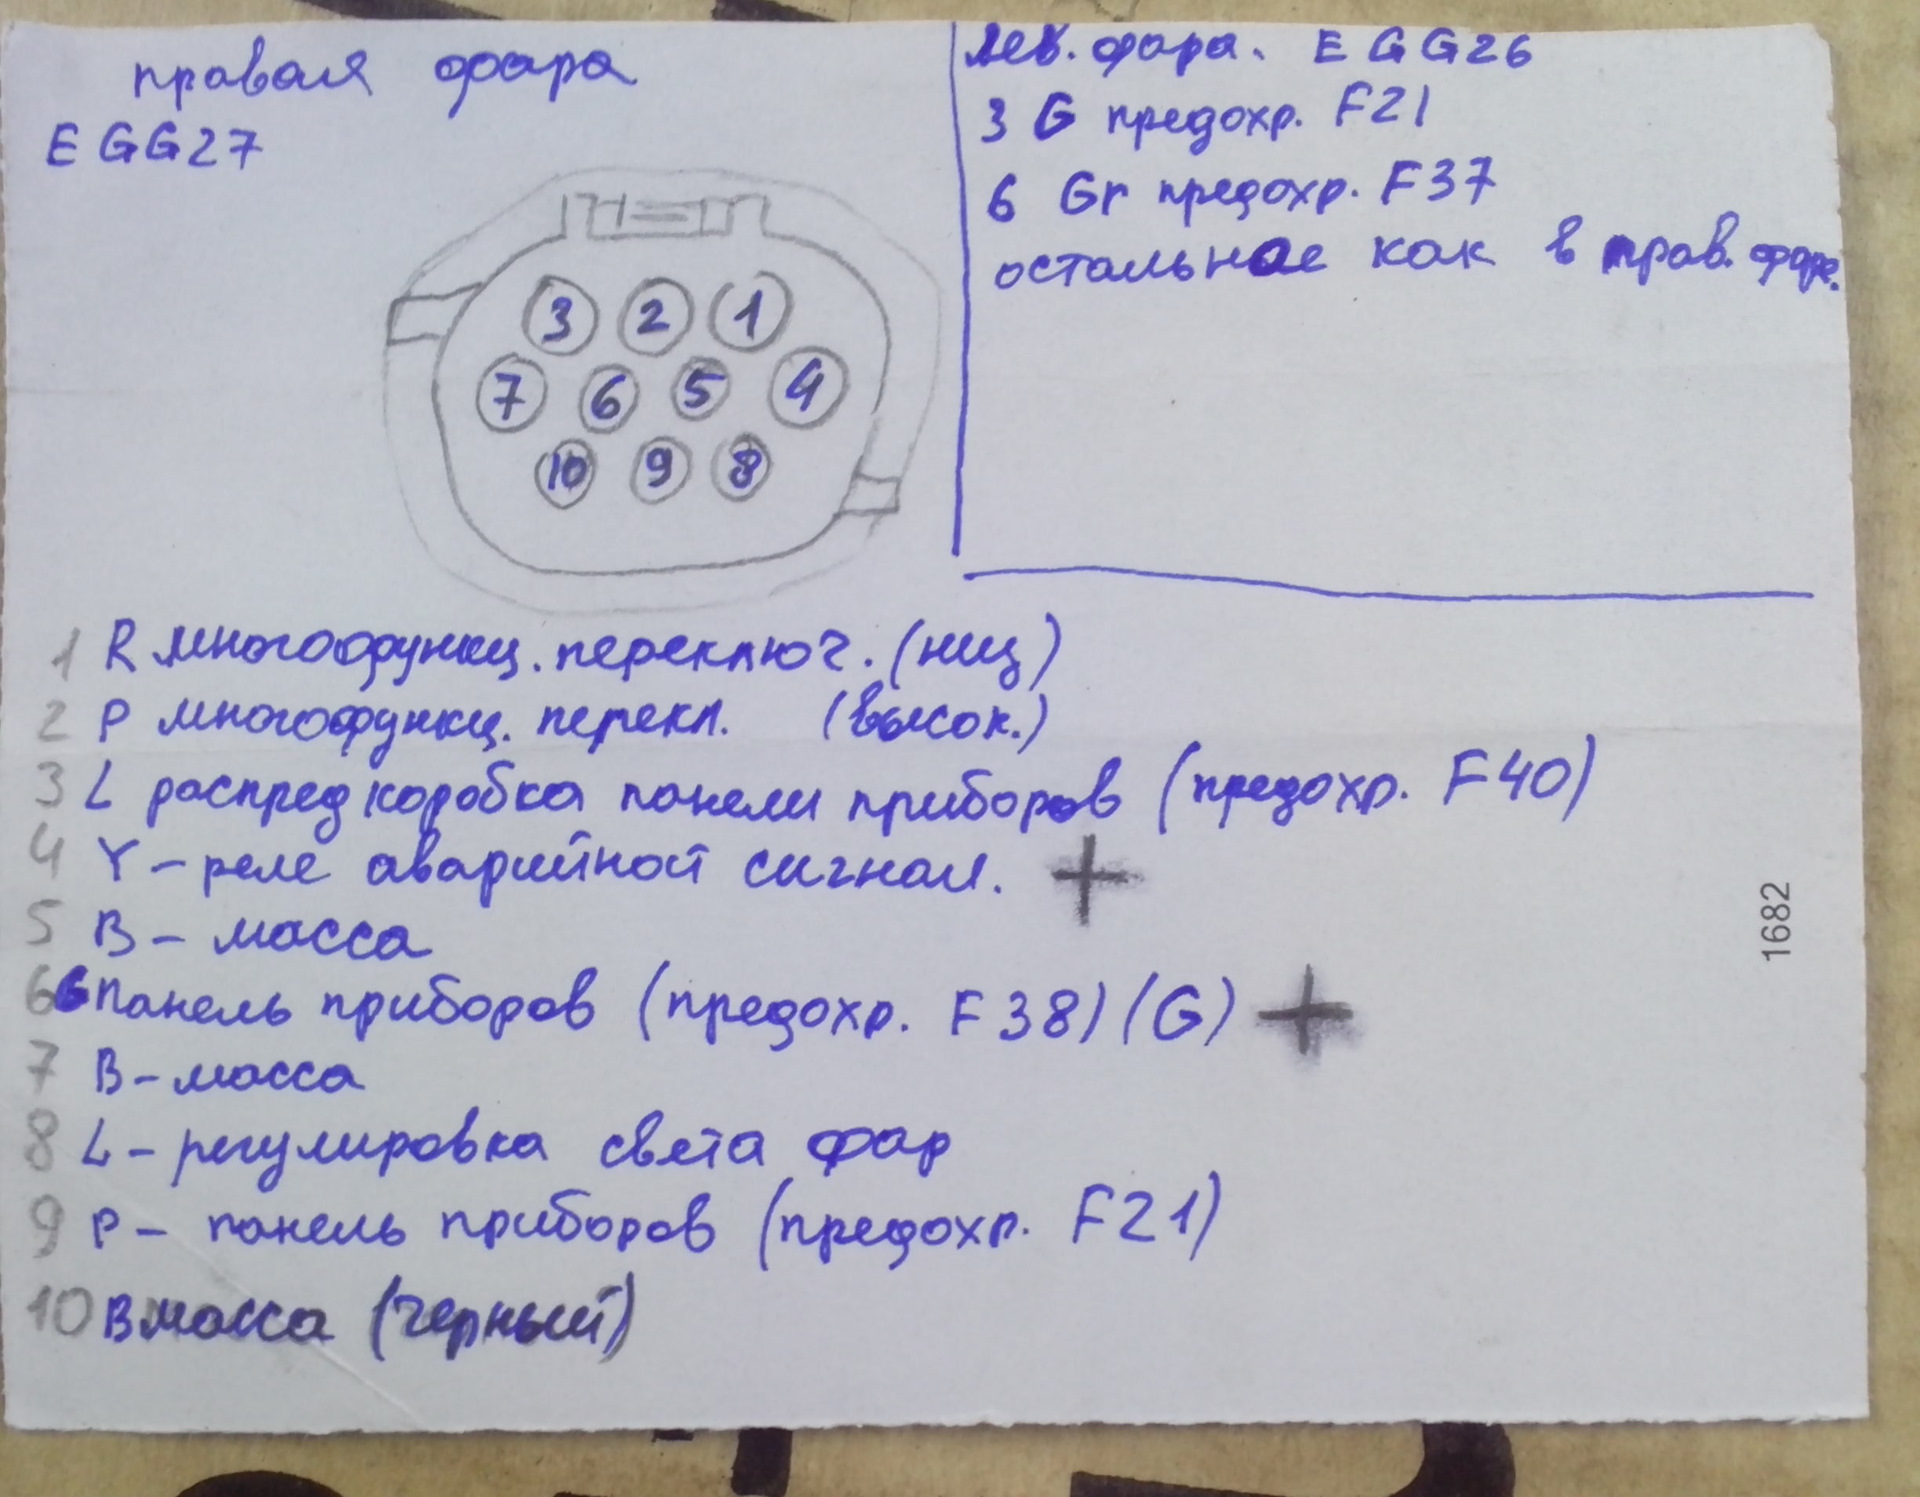 правая фара
EGG27
3 2 1
7 6 5 4
10 9 8
лев. фара. EGG26
3 G предохр. F21
6 Gr предохр. F37
остальное как в прав. фаре.
1 R многофункц. переключ. (низ)
2 P многофункц. перекл. (высок.)
3 L распред коробка панели приборов (предохр. F40)
4 Y – реле аварийной сигнал. +
5 B – масса
6 6 панель приборов (предохр. F38) (G) +
7 B – масса
8 L – регулировка света фар
9 P – панель приборов (предохр. F21)
10 B масса (черный)
1682